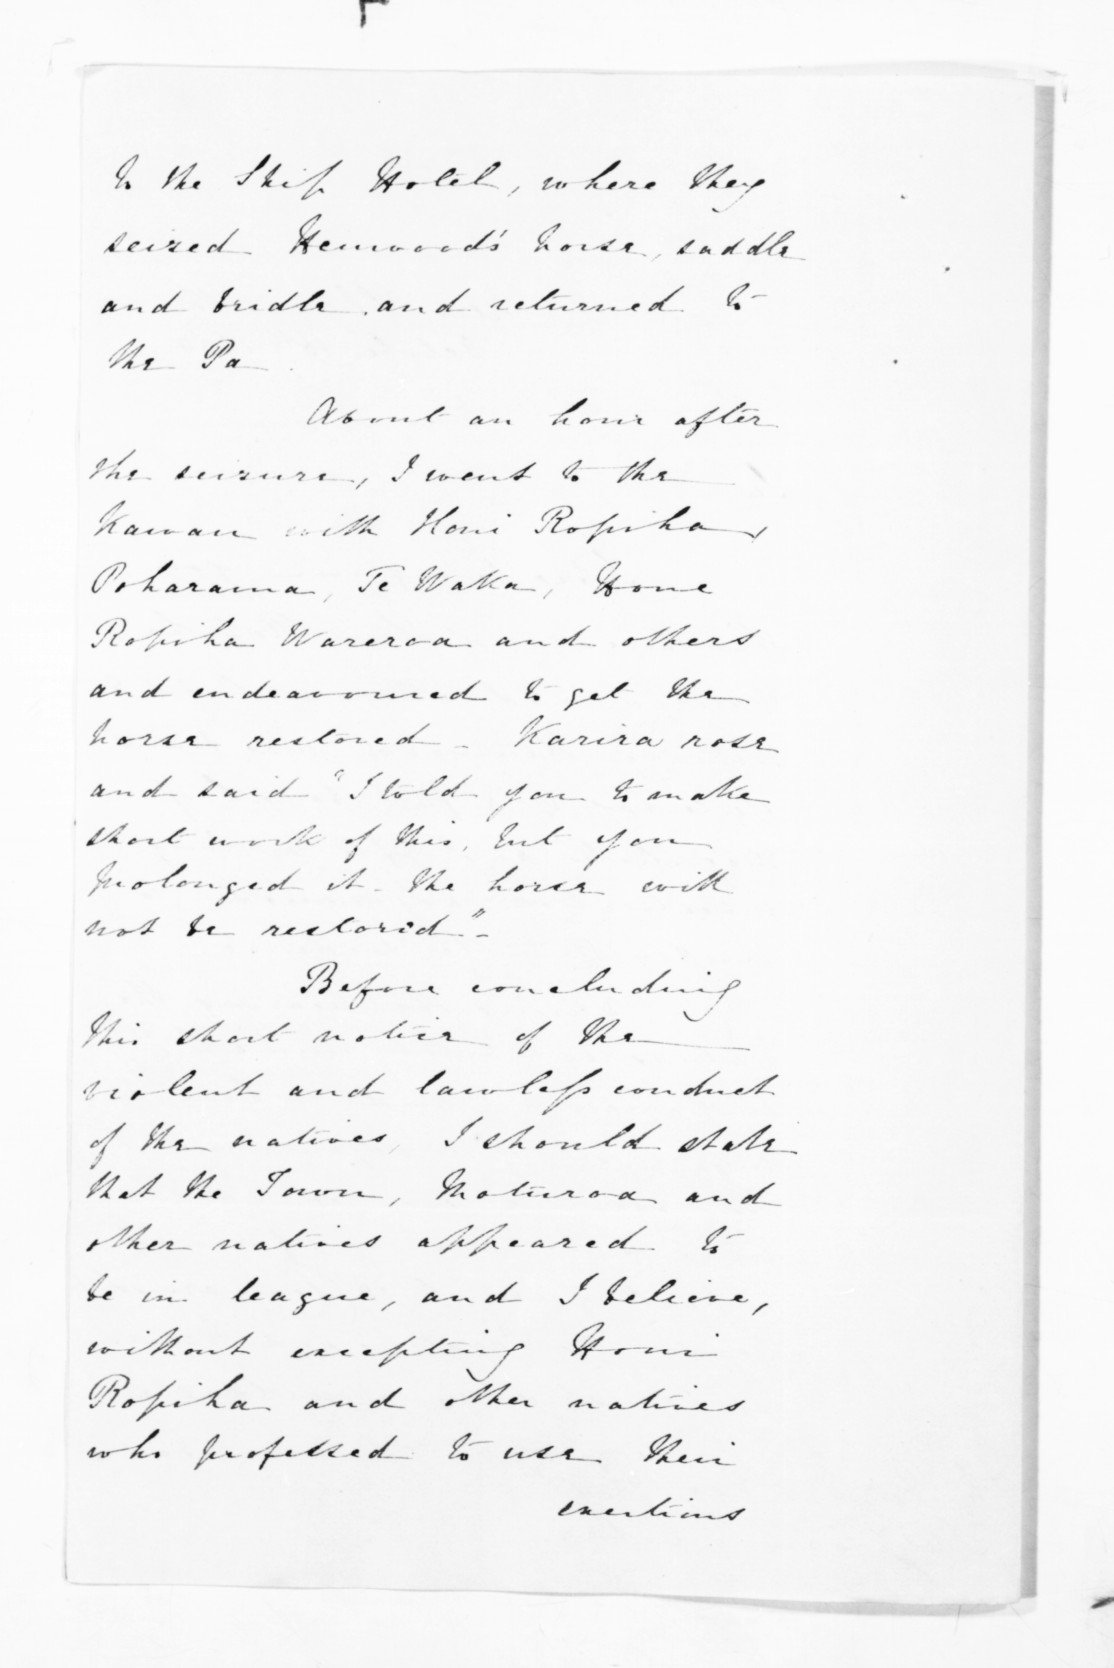 to the Ship Hotel, where they
seized Henwood's horse, saddle
and bridle and returned to
the Pa
About an hour after
the seizure, I went to the
Kawau with Honi Ropiha,
Poharama, Te Waka, Hone
Ropiha Wareroa and others
and endeavoured to get the
horse restored - Karira rose
and said "I told you to make
short work of this, but you
prolonged it - the horse will
not be restored" -
Before concluding
this short notice of the
violent and lawless conduct
of the natives, I should state
that the Town, Moturoa and
other natives appeared to
be in league, and I believe,
without excepting Honi
Ropiha and other natives
who professed to use their
exertions